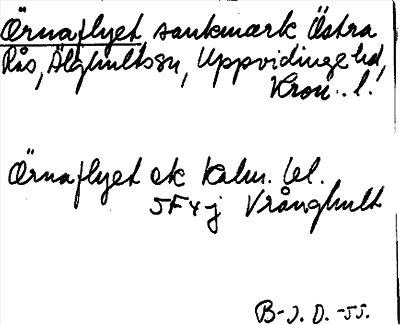 Örnaflyet sankmark Östra
Rås, Älghultssn, Uppvidinge hd,
Kron. l.
Örnaflyet ek Kalm. bl.
5F4j Vrånghult
B-J. D. -55.